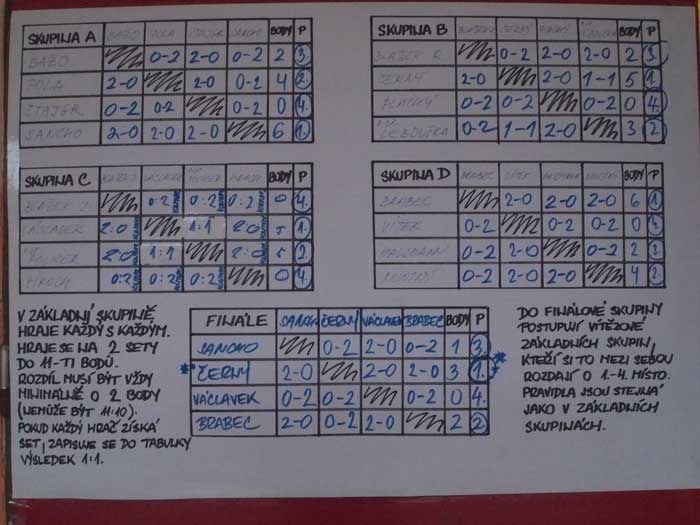 SKUPINA A BAŽO POLA ETAJER SANCHO BODY P
BAŽO 0-2 2-0 0-2 2 3.
POLA 2-0 2-0 0-2 4 2.
ETAJER 0-2 0-2 0-2 0 4.
SANCHO 2-0 2-0 2-0 6 1.
SKUPINA B ČERNÝ PLACHÝ BODY P
0-2 2-0 2-0 2 3.
ČERNÝ 2-0 2-0 1-1 5 1.
PLACHÝ 0-2 0-2 0-2 0 4.
0-2 1-1 2-0 3 2.
SKUPINA C VÁCLAVEK BODY P
0:2 0:2 0:2 0 4.
VÁCLAVEK 2:0 1:1 2:0 5 1.
2:0 1:1 2:0 5 2.
0:2 0:2 0:2 0 4.
SKUPINA D BRABEC VÍTEK BODY P
BRABEC 2-0 2-0 2-0 6 1.
VÍTEK 0-2 0-2 0-2 0 4.
0-2 2-0 0-2 2 3.
0-2 2-0 2-0 4 2.
V ZÁKLADNÍ SKUPINĚ
HRAJE KAŽDÝ S KAŽDÝM.
HRAJE SE NA 2 SETY
DO 11-TI BODŮ.
ROZDÍL MUSÍ BÝT VŽDY
MINIMÁLNĚ O 2 BODY
(NEMŮŽE BÝT 11:10).
POKUD KAŽDÝ HRÁČ ZÍSKÁ
SET, ZAPISUJE SE DO TABULKY
VÝSLEDEK 1:1.
FINÁLE SANCHO ČERNÝ VÁCLAVEK BRABEC BODY P
SANCHO 0-2 2-0 0-2 1 3.
*ČERNÝ 2-0 2-0 2-0 3 1.*
VÁCLAVEK 0-2 0-2 0-2 0 4.
BRABEC 2-0 0-2 2-0 2 2.
DO FINÁLOVÉ SKUPINY
POSTUPUJÍ VÍTĚZOVÉ
ZÁKLADNÍCH SKUPIN,
KTEŘÍ SI TO MEZI SEBOU
ROZDAJÍ O 1.-4. MÍSTO.
PRAVIDLA JSOU STEJNÁ
JAKO V ZÁKLADNÍCH
SKUPINÁCH.